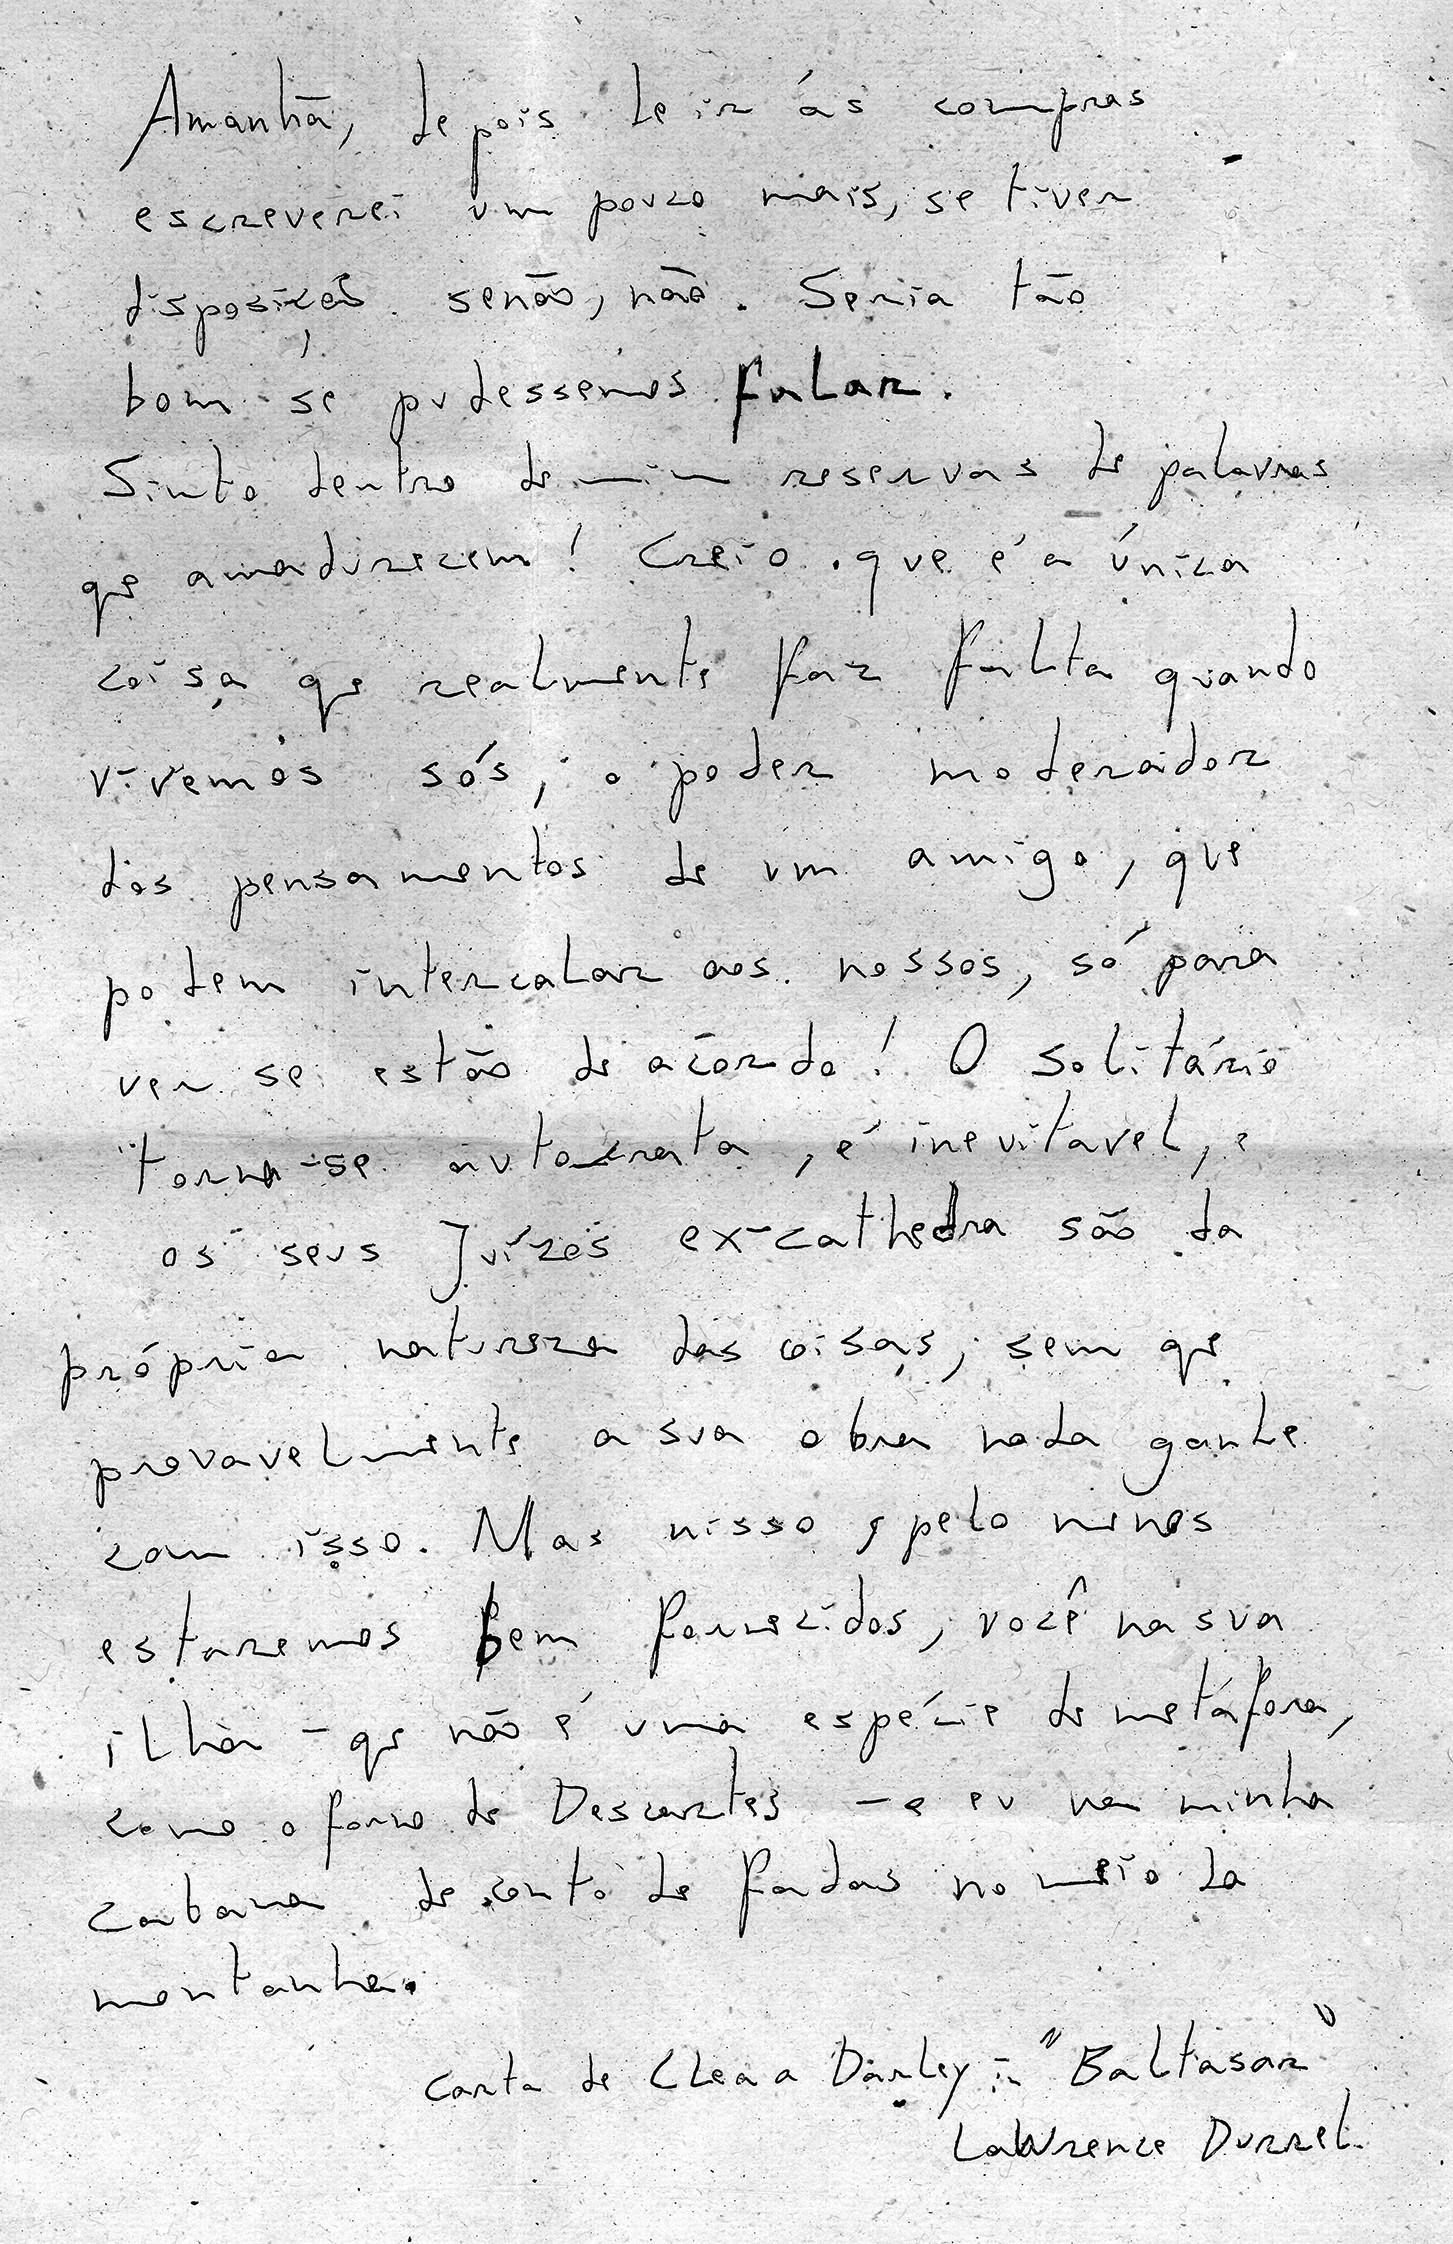 Amanhã, depois de ir ás compras
escreverei um pouco mais, se tiver
disposição senão, não. Seria tão
bom se pudessemos falar.
Sinto dentro de mim reservas de palavras
qe amadurecem! Creio que é a única
coisa qe realmente faz falta quando
vivemos sós, o poder moderador
dos pensamentos de um amigo, que
podem intercalar aos nossos, só para
ver se estão de acordo! O solitário
torna-se autocrata, é inevitavel, e
os seus juízos ex-cathedra são da
própria natureza das coisas, sem qe
provavelmente a sua obra nada ganhe
com isso. Mas nisso, pelo menos
estaremos bem fornecidos, você na sua
ilha - qe não é uma espécie de metáfora,
como o forno de Descartes - e eu na minha
cabana de conto de fadas no meio da
montanha.
Carta de Clea a Darley in "Baltasar"
Lawrence Durrel.